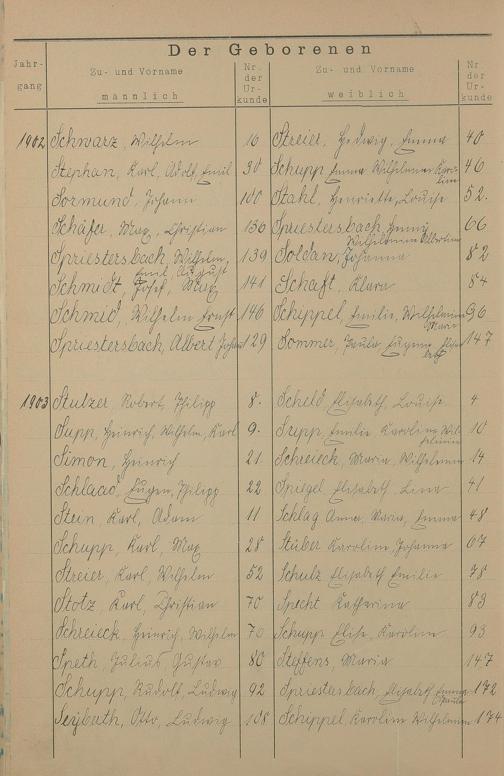 Der Geborenen
Jahr-
gang
Zu- und Vorname
männlich
Nr.
der
Ur-
kunde
Zu- und Vorname
weiblich
Nr
der
Ur-
kunde
1902 Schwarz, Wilhelm 16 Streier, Hedwig, Emma 40
Stephan, Karl, Adolf, Emil 30 Schupp Emma Wilhelmine Karo-
line 46
Sormund, Johann 100 Stahl, Henriette, Louise 52.
Schäfer, Max, Christian 136 Spriestersbach, Henny 66
Wilhelmine Albertine
Spriestersbach, Wilhelm, 139 Soldan, Johanna 82
Emil, August
Schmidt, Josef, Max 141 Schaft, Klara 84
Schmid, Wilhelm Ernst 146 Schippel, Emilie, Wilhelmine 96
Marie
Spriestersbach, Albert Johann 129 Sommer, Paula Eugenie Elisa- 147
beth
1903 Stulzer, Robert, Philipp 8. Scheld, Elisabeth, Louise 4
Supp, Heinrich, Wilhelm, Karl 9. Supp, Emilie Karoline Wil- 10
helmine
Simon, Heinrich 21 Schreieck, Maria Wilhelmine 14
Schlaad, Eugen, Philipp 22 Spiegel, Elisabeth, Lina 41
Stein, Karl, Adam 11 Schlag Anna, Maria, Emma 48
Schupp, Karl, Max 28 Stüber Karoline, Johanna 67
Streier, Karl, Wilhelm 52 Schulz Elisabeth Emilie 78
Stotz, Karl, Christian 70 Specht Katharina 83
Schreieck, Heinrich, Wilhelm 70 Schupp Elise, Karoline 93
Speth, Julius Gustav 80 Steffens, Maria 147
Schupp, Rudolf, Ludwig 92 Spriestersbach, Elisabeth Emma 172
Paula
Seybarth, Otto, Ludwig 108 Schippel, Karoline Wilhelmine 174